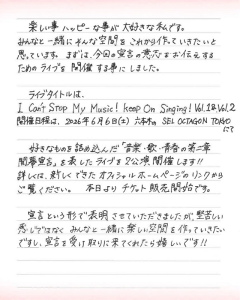 楽しい事 ハッピーな事が 大好きな私です。
みんなと一緒に そんな空間を これから作っていきたいと
思っています。まずは、今回の宣言の意志をお伝えする
ためのライブを 開催する事にしました。
ライブタイトルは、
I Can't Stop My Music! Keep On Singing! Vol.1&Vol.2
開催日程は、2026年6月6日(土) 六本木 SEL OCTAGON TOKYO
にて
好きなものを詰め込んだ「音楽・歌・青春の第二章
開幕宣言」を 表したライブを 2公演 開催します!!
詳しくは、新しくできた オフィシャルホームページのリンクから
ご覧ください。 本日より チケット販売開始です。
宣言という形で表明 させていただきましたが、堅苦しい
感じではなく みんなと一緒に 楽しい空間を作っていきたい
ですし、宣言を受け取りに来てくれたら嬉しいです!!